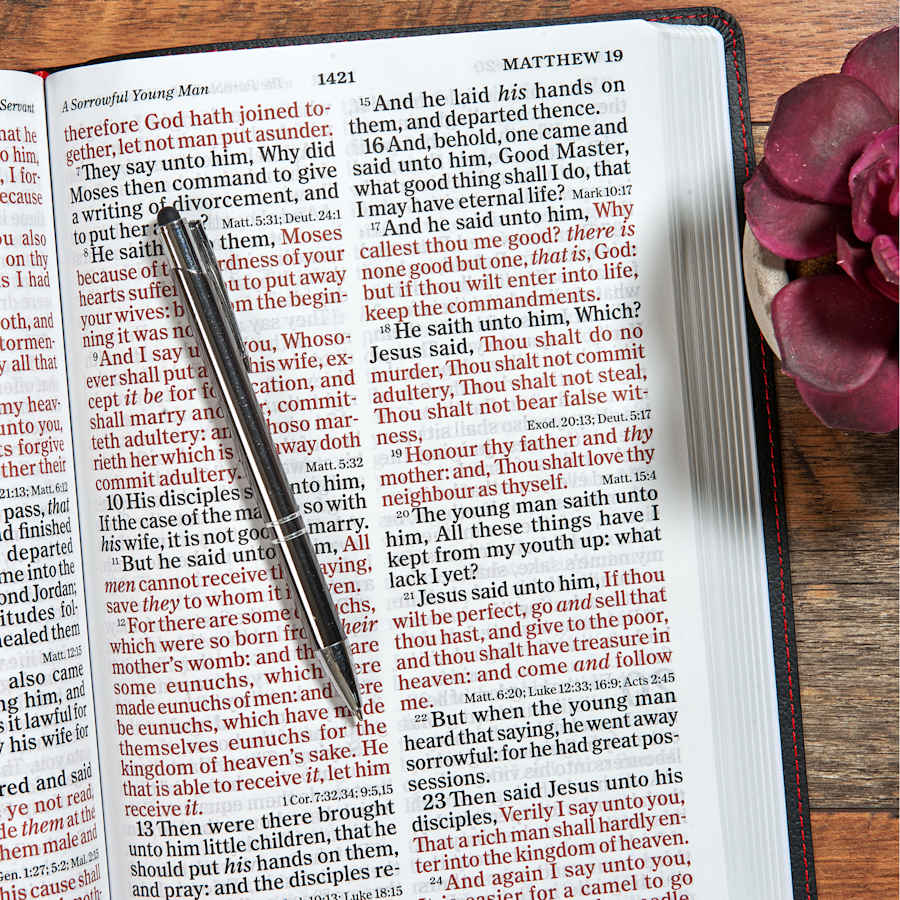 Servant
hat he
o him,
I for-
ecause
ou also
on thy
s I had
oth, and
tormen-
y all that
my heav-
unto you,
ts forgive
ther their
21:13; Matt. 6:12
pass, that
d finished
departed
me into the
ond Jordan;
titudes fol-
healed them
Matt. 12:15
also came
ng him, and
s it lawful for
y his wife for
red and said
ve not read,
de them at the
hem male and
Gen. 1:27; 5:2; Mal. 2:15
his cause shall
A Sorrowful Young Man
1421
MATTHEW 19
therefore God hath joined to-
gether, let not man put asunder.
7 They say unto him, Why did
Moses then command to give
a writing of divorcement, and
to put her ? Matt. 5:31; Deut. 24:1
8 He saith them, Moses
because of rdness of your
hearts suffe u to put away
your wives: b m the begin-
ning it was no
9 And I say u you, Whoso-
ever shall put a his wife, ex-
cept it be for fo cation, and
shall marry an , commit-
teth adultery: a hoso mar-
rieth her which is away doth
commit adultery. Matt. 5:32
10 His disciples s unto him,
If the case of the ma so with
his wife, it is not goo marry.
11 But he said unto m, All
men cannot receive t aying,
save they to whom it i ven.
12 For there are some uchs,
which were so born fro heir
mother's womb: and th are
some eunuchs, which ere
made eunuchs of men: and ere
be eunuchs, which have made
themselves eunuchs for the
kingdom of heaven's sake. He
that is able to receive it, let him
receive it. 1 Cor. 7:32,34; 9:5,15
13 Then were there brought
unto him little children, that he
should put his hands on them,
and pray: and the disciples re-
10:13; Luke 18:15
15 And he laid his hands on
them, and departed thence.
16 And, behold, one came and
said unto him, Good Master,
what good thing shall I do, that
I may have eternal life? Mark 10:17
17 And he said unto him, Why
callest thou me good? there is
none good but one, that is, God:
but if thou wilt enter into life,
keep the commandments.
18 He saith unto him, Which?
Jesus said, Thou shalt do no
murder, Thou shalt not commit
adultery, Thou shalt not steal,
Thou shalt not bear false wit-
ness, Exod. 20:13; Deut. 5:17
19 Honour thy father and thy
mother: and, Thou shalt love thy
neighbour as thyself. Matt. 15:4
20 The young man saith unto
him, All these things have I
kept from my youth up: what
lack I yet?
21 Jesus said unto him, If thou
wilt be perfect, go and sell that
thou hast, and give to the poor,
and thou shalt have treasure in
heaven: and come and follow
me. Matt. 6:20; Luke 12:33; 16:9; Acts 2:45
22 But when the young man
heard that saying, he went away
sorrowful: for he had great pos-
sessions.
23 Then said Jesus unto his
disciples, Verily I say unto you,
That a rich man shall hardly en-
ter into the kingdom of heaven.
24 And again I say unto you,
It is easier for a camel to go